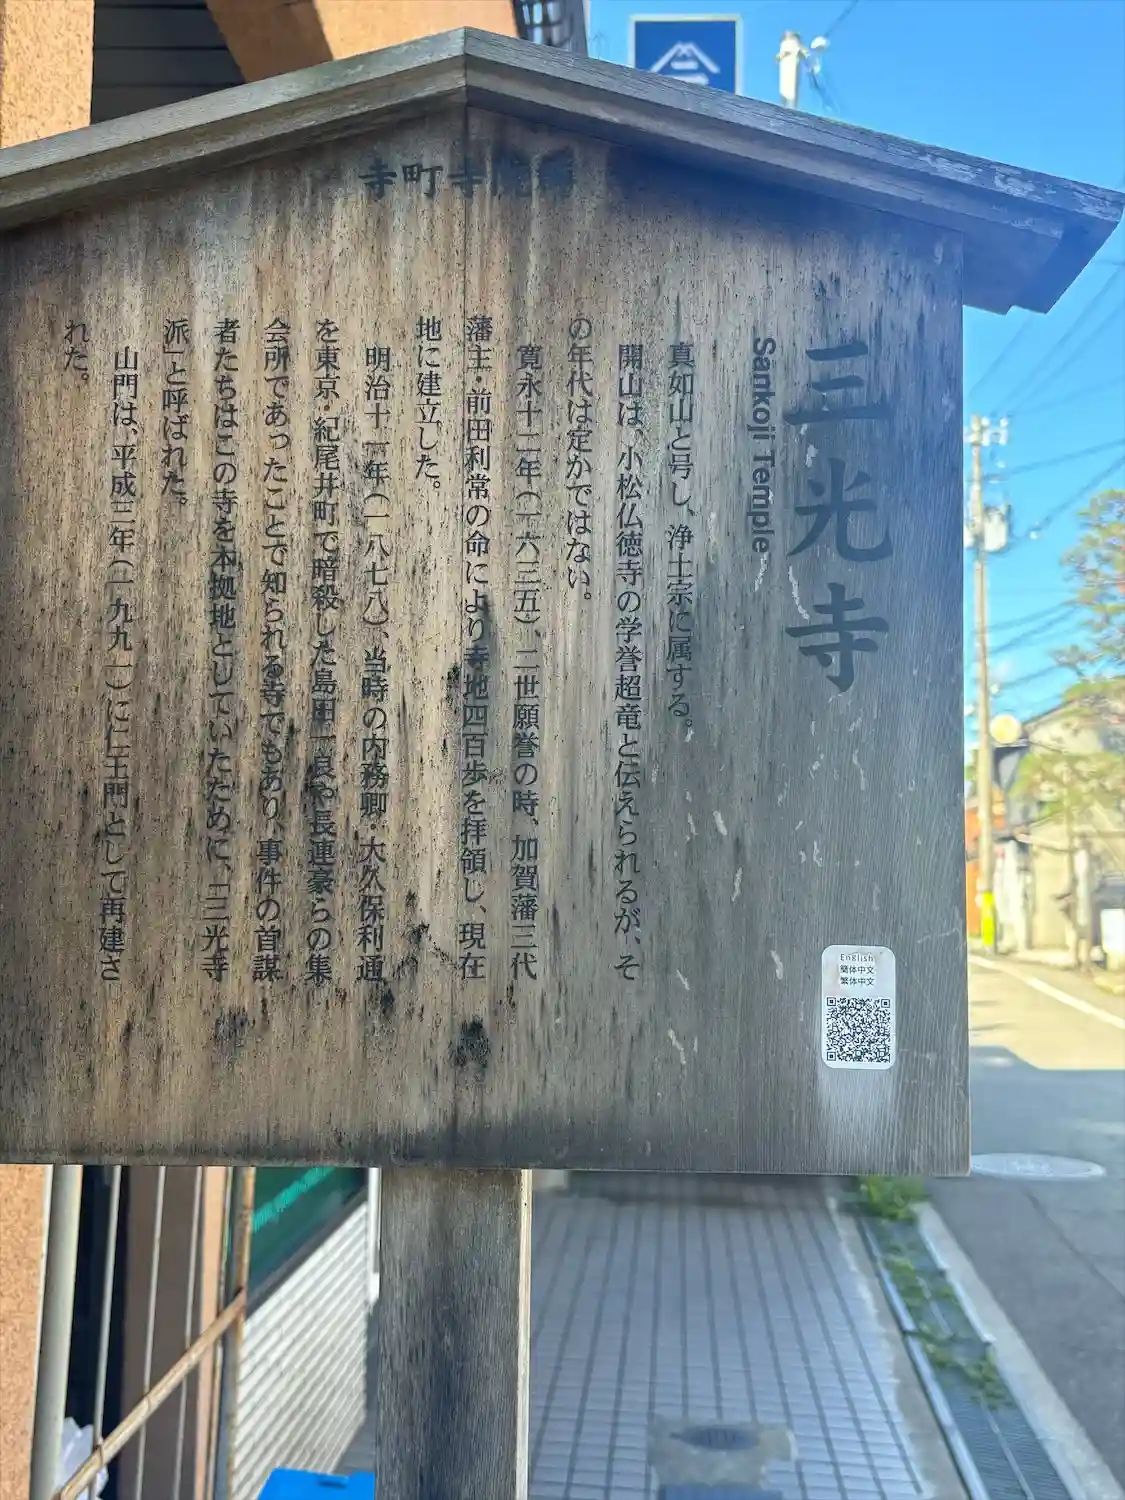 寺町寺院群
三光寺
Sankoji Temple
真如山と号し、浄土宗に属する。
開山は、小松仏徳寺の学誉超竜と伝えられるが、そ
の年代は定かではない。
寛永十二年(一六三五)、二世願誉の時、加賀藩三代
藩主・前田利常の命により寺地四百歩を拝領し、現在
地に建立した。
明治十一年(一八七八)、当時の内務卿・大久保利通
を東京・紀尾井町で暗殺した島田一良や長連豪らの集
会所であったことで知られる寺でもあり、事件の首謀
者たちはこの寺を本拠地としていたために、「三光寺
派」と呼ばれた。
山門は、平成三年(一九九一)に仁王門として再建さ
れた。
English
簡体中文
繁体中文